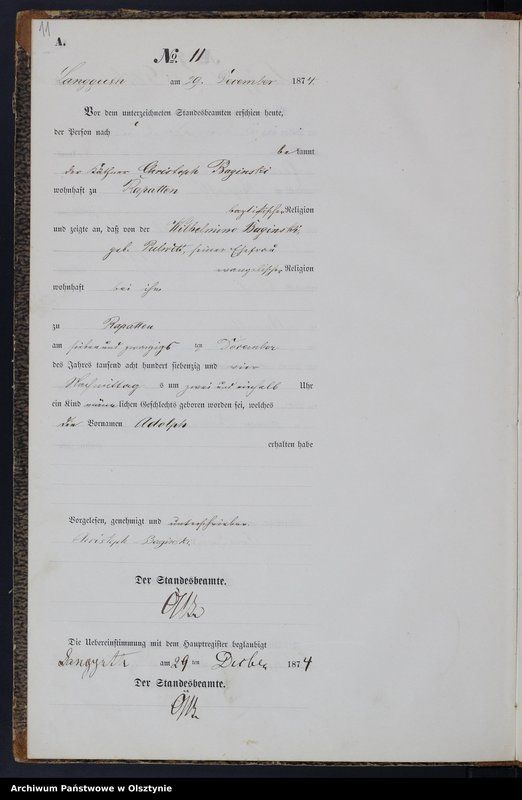 11
A.
No. 11
am 29. December 1874.
Vor dem unterzeichneten Standesbeamten erschien heute,
der Person nach
bekannt
der Käthner Christoph Baginski
wohnhaft zu Rapatten
baptistischer Religion
und zeigte an, daß von der Wilhelmine Baginski,
geb. seiner Ehefrau
evangelischer Religion
wohnhaft bei ihm
zu Rapatten
am sieben und zwanzigsten December
des Jahres tausend acht hundert siebenzig und vier
Nachmittags um zwei und einhalb Uhr
ein Kind männlichen Geschlechts geboren worden sei, welches
den Vornamen Adolph
erhalten habe
Vorgelesen, genehmigt und unterschrieben
Christoph Baginski.
Der Standesbeamte.
Die Uebereinstimmung mit dem Hauptregister beglaubigt
am 29 ten Decbr. 1874
Der Standesbeamte.
Archiwum Państwowe w Olsztynie